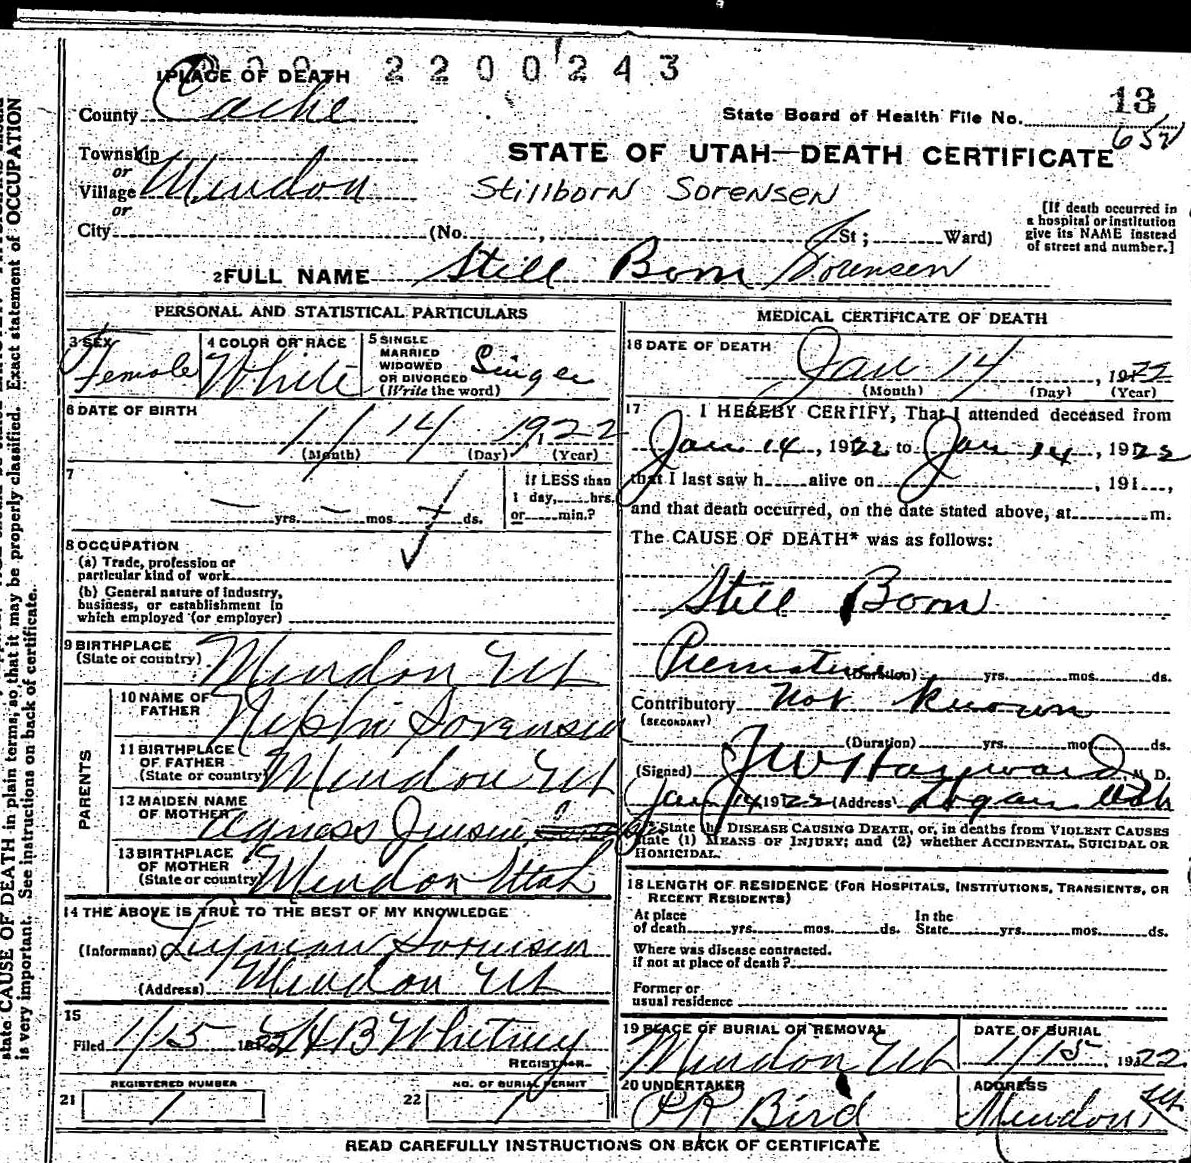 2200243
1 PLACE OF DEATH
13
County Cache
State Board of Health File No.
652
Township
or
Village Mendon
STATE OF UTAH—DEATH CERTIFICATE
Stillborn Sorensen
or
City (No. , St; Ward)
[If death occurred in
a hospital or institution
give its NAME instead
of street and number.]
2 FULL NAME Still Born Sorensen
PERSONAL AND STATISTICAL PARTICULARS
3 SEX Female
4 COLOR OR RACE White
5 SINGLE
MARRIED
WIDOWED
OR DIVORCED
(Write the word)
Singel
6 DATE OF BIRTH
1/ 14 1922
(Month) (Day) (Year)
7
yrs. mos. ds.
If LESS than
1 day, hrs.
or min.?
8 OCCUPATION
(a) Trade, profession or
particular kind of work
(b) General nature of industry,
business, or establishment in
which employed (or employer)
9 BIRTHPLACE
(State or country) Mendon Ut
PARENTS
10 NAME OF
FATHER Nephi Sorensen
11 BIRTHPLACE
OF FATHER
(State or country) Mendon Ut
12 MAIDEN NAME
OF MOTHER Agness Jensen
13 BIRTHPLACE
OF MOTHER
(State or country) Mendon Utah
14 THE ABOVE IS TRUE TO THE BEST OF MY KNOWLEDGE
(Informant) Lyman Sorensen
(Address) Mendon Ut
15
Filed 1/15 1922 H B Whitney
REGISTRAR
REGISTERED NUMBER
21 1
NO. OF BURIAL PERMIT
22 1
MEDICAL CERTIFICATE OF DEATH
16 DATE OF DEATH
Jan 14, 1922
(Month) (Day) (Year)
17 I HEREBY CERTIFY, That I attended deceased from
Jan 14, 1922 to Jan 14, 1922
that I last saw h alive on , 191 ,
and that death occurred, on the date stated above, at m.
The CAUSE OF DEATH* was as follows:
Still Born
Premature
(Duration) yrs. mos. ds.
Contributory Not Known
(SECONDARY)
(Duration) yrs. mos. ds.
(Signed) J W Hayward M. D.
Jan 14 1922 (Address) Logan Utah
*State the DISEASE CAUSING DEATH, or, in deaths from VIOLENT CAUSES
state (1) MEANS OF INJURY; and (2) whether ACCIDENTAL, SUICIDAL OR
HOMICIDAL.
18 LENGTH OF RESIDENCE (FOR HOSPITALS, INSTITUTIONS, TRANSIENTS, OR
RECENT RESIDENTS)
At place
of death yrs. mos. ds.
In the
State yrs. mos. ds.
Where was disease contracted.
if not at place of death?
Former or
usual residence
19 PLACE OF BURIAL OR REMOVAL
Mendon Ut
DATE OF BURIAL
1/15, 1922
20 UNDERTAKER
Bird
ADDRESS
Mendon Ut
READ CAREFULLY INSTRUCTIONS ON BACK OF CERTIFICATE
state CAUSE OF DEATH in plain terms, so that it may be properly classified. Exact statement of OCCUPATION
is very important. See instructions on back of certificate.